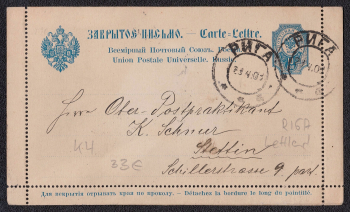 ЗАКРЫТОЕ ПИСЬМО. — Carte-Lettre.
Всемірный Почтовый Союзъ. Россія.
Union Postale Universelle. Russie.
РИГА
РИГА
Herrn Ober-Postpraktikant
K. Schnur
Stettin
Schillerstrasse 9, part.
RIGA
K4
33€
Для вскрытія оторвать края по проколу. — Détachez la bordure le long du pointillé.